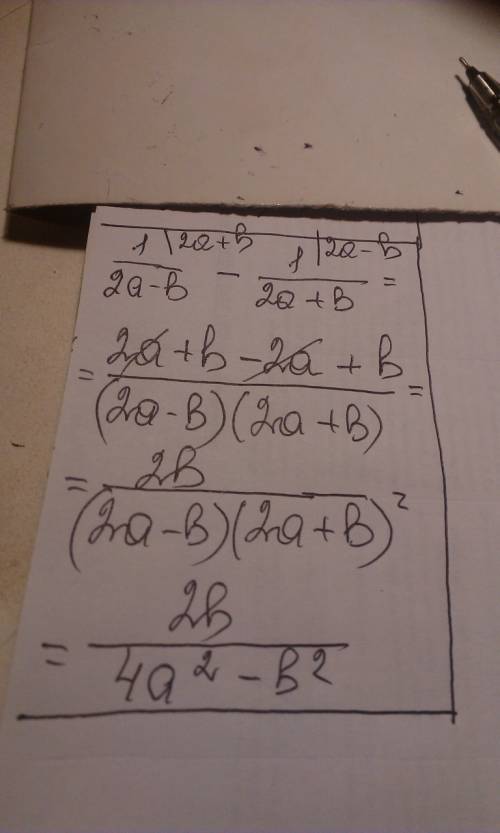 1 \2a+b 1 |2a-b
2a-b - 2a+b =
= 2a+b-2a+b =
(2a-b)(2a+b)
= 2b
(2a-b)(2a+b)²
2b
= 4a²-b²